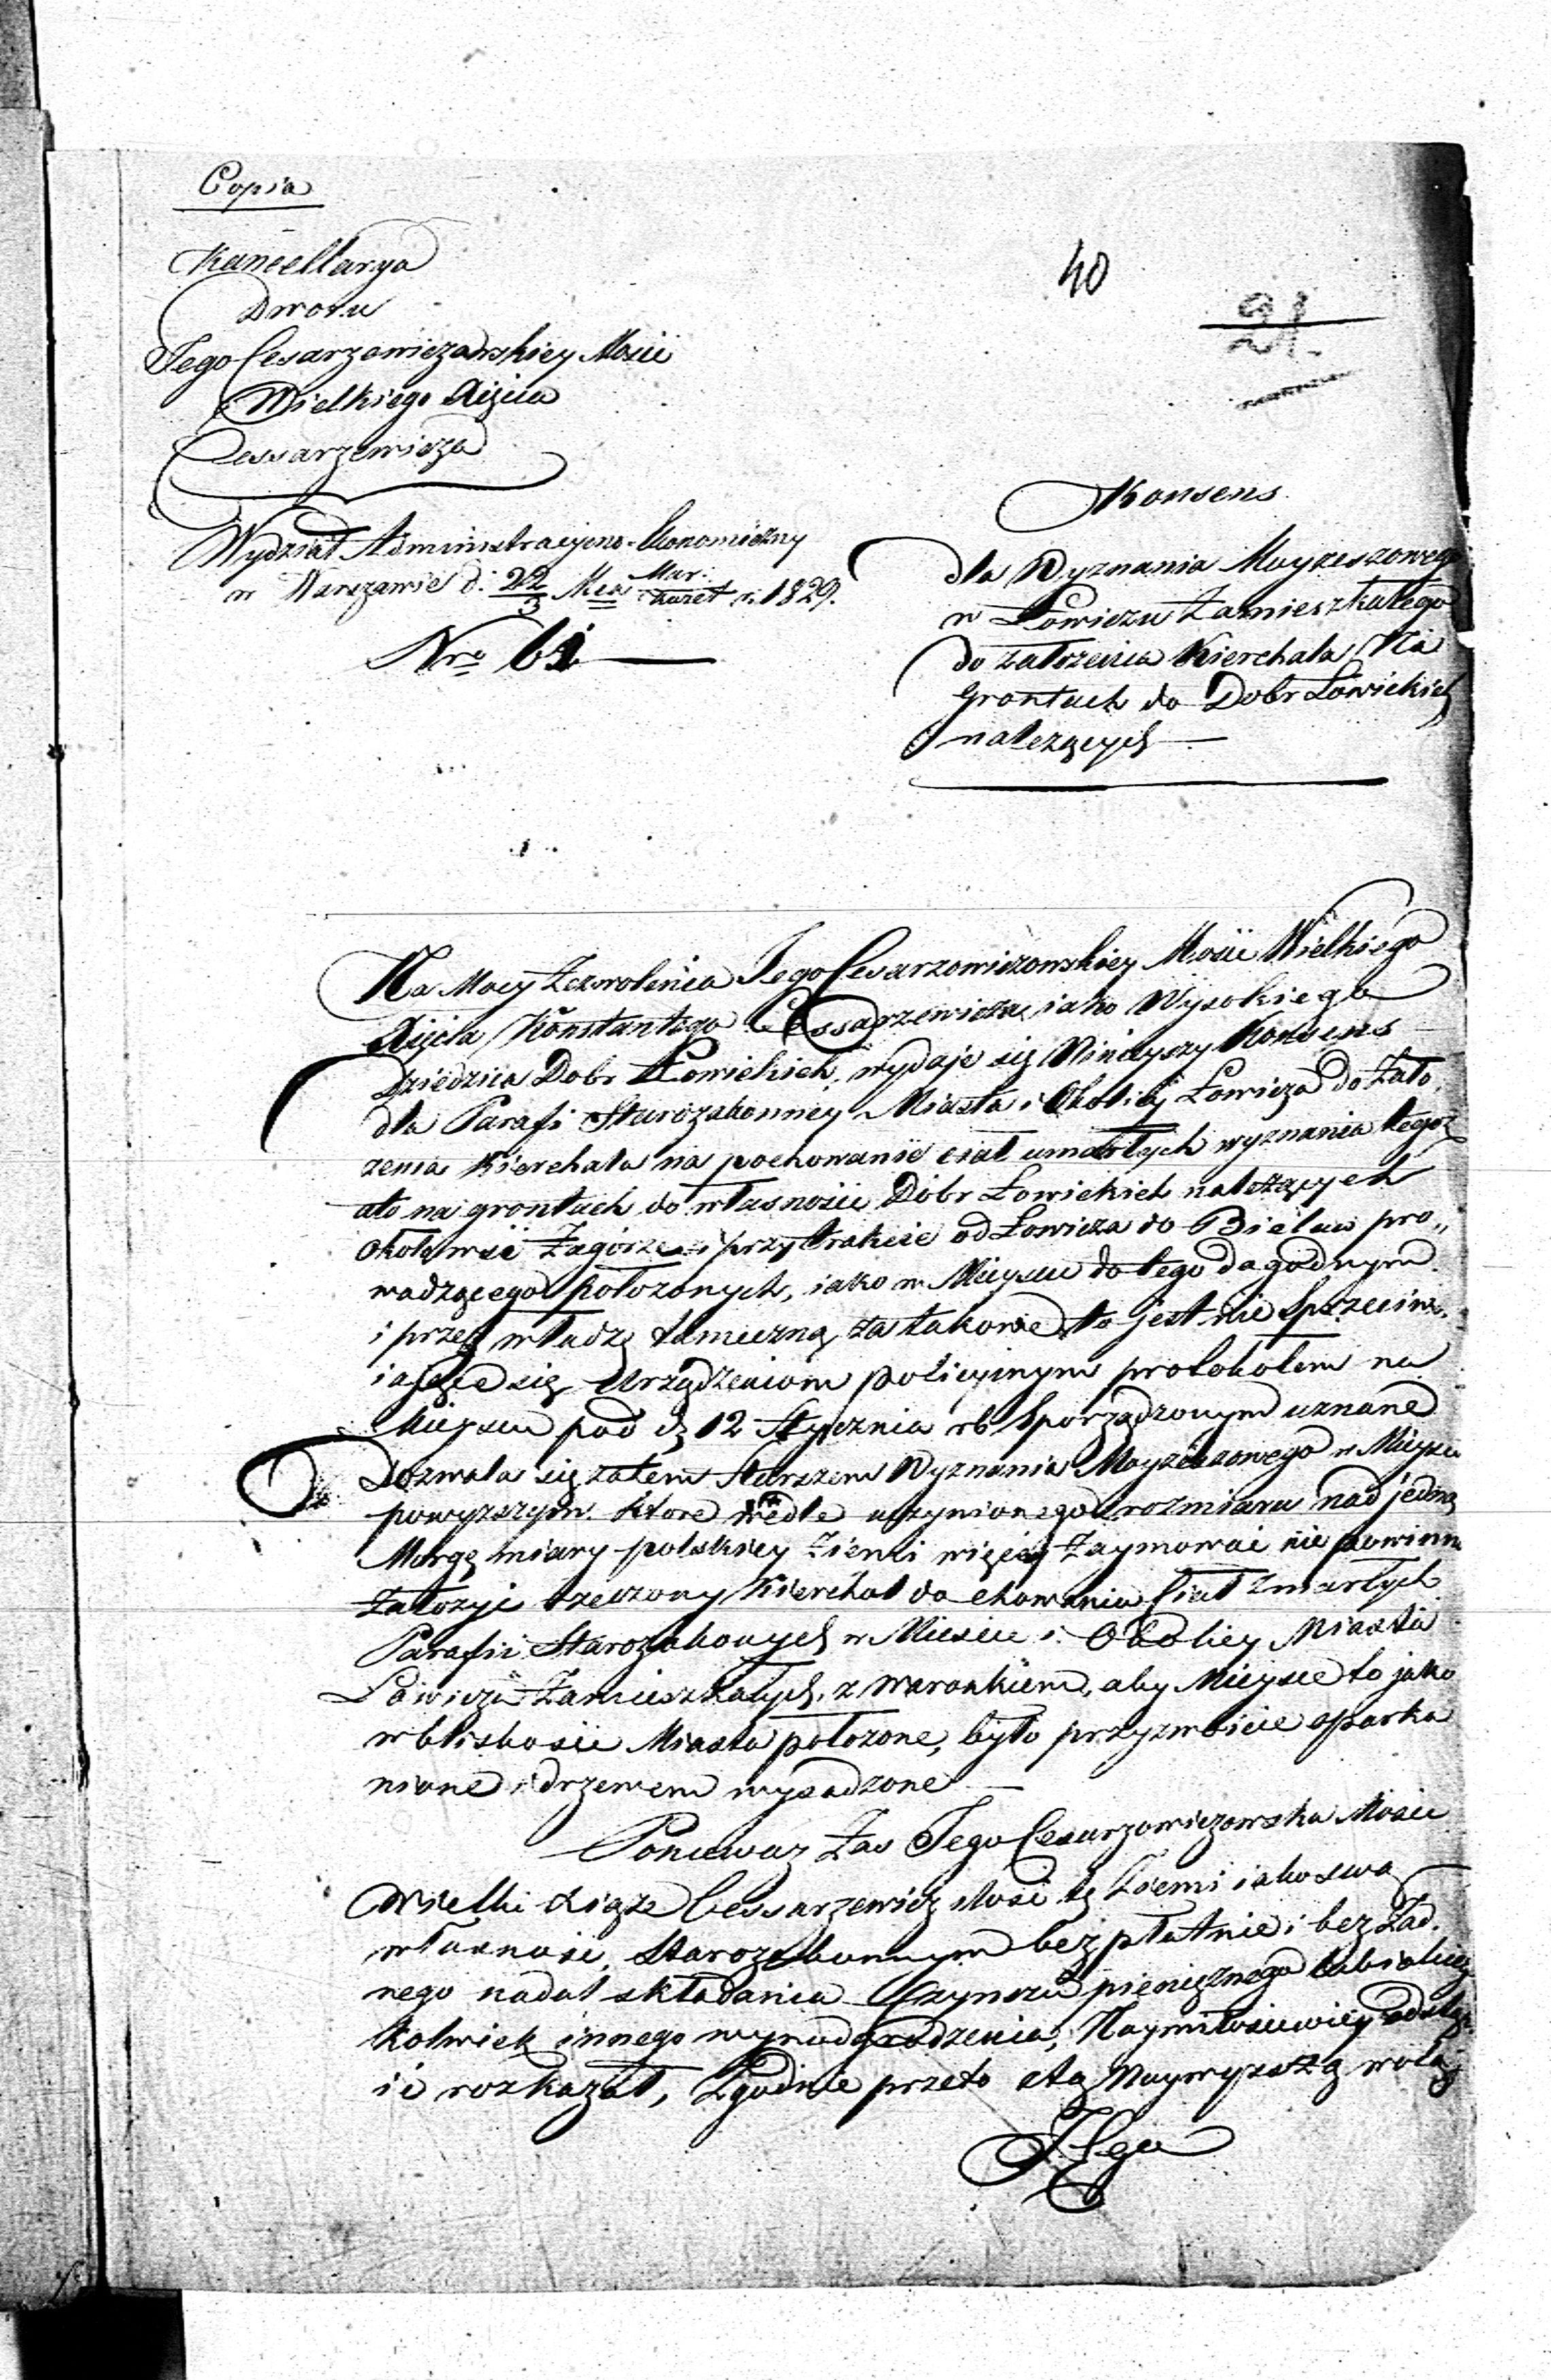 Copia
Kancellarya
Dworu
Jego Cesarzowiczowskiey Mości
Wielkiego Xięcia
Cessarzewicza
40
21.
Wydział Administracyjno-Ekonomiczny
w Warszawie d. 22/3 Mca Mar:/ r. 1829.
Nro 61
Konsens
dla Wyznania Moyżeszowego
w Łowiczu Zamieszkałego
do założenia Kierchała Na
Grontach do Dobr Łowickich
należących
Na Mocy Zezwolenia Jego Cesarzowiczowskiey Mości Wielkiego
Xięcia Konstantego Cessarzewicza, iako Wysokiego
Dziedzica Dobr Łowickich, wydaje się Ninieyszy Konsens
dla Parafi Starozakonney Miasta i Okolicy Łowicza do Zało,
żenia Kierchała na pochowanie ciał umarłych wyznania tegoż
ato na grontach do własności Dobr Łowickich należących
około wsi Zagórze i przy trakcie od Łowicza do Bielaw pro„
wadzącego położonych, iako w Mieyscu do tego dogodnym
i przez władzę tameczną za takowe to jest nie sprzeciw,
iające się Urządzeniom policyinym protokołem na
Mieyscu pod d. 12 Stycznia rb Sporządzonym uznane
Dozwala się zatem Starszem Wyznania Moyżeszowego w Mieyscu
powyższym. które wedle uczynionego rozmiaru nad jedną
Morgę miary polskiey ziemi więcey Zaymować nie powinno
Założyć rzeczony Kierchoł do chowania Ciał Zmarłych
Parafii Starozakonnych w Mieście i Okolicy Miasta
Łowicza Zamieszkałych, z waronkiem, aby Mieysce to jako
w bliskości Miasta położone, było przyzwoicie oparka
nione i drzewem wysadzone
Ponieważ Zaś Jego Cesarzowiczowska Mość
Wielki Xiąże Cessarzewicz ilość tę Ziemi iako swą
własność, Starozakonnym bezpłatnie i bez Żad.
nego nadal składania Czynszu pieniężnego lub iakiego
kolwiek innego wynadgrodzenia, Naymiłościwiey odstą
ić rozkazał, Zgodnie przeto z tą Naywyższą wolą
Jego